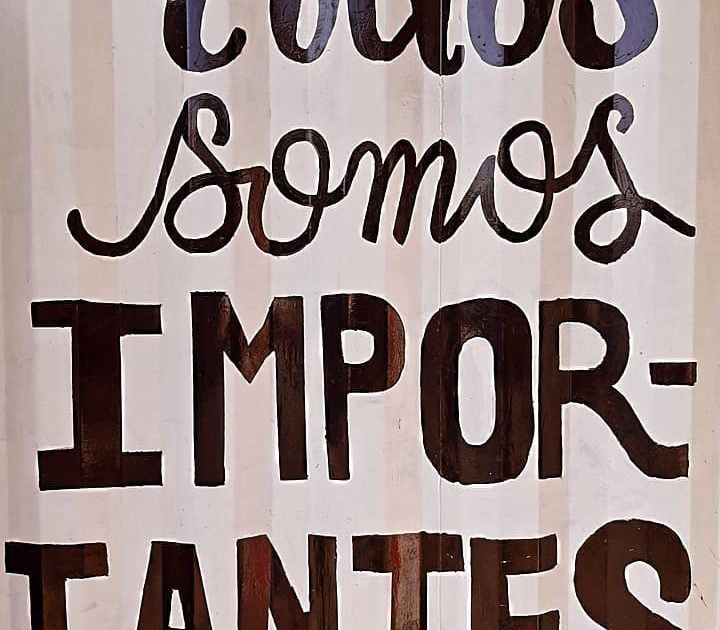 todos
somos
IMPOR-
TANTES